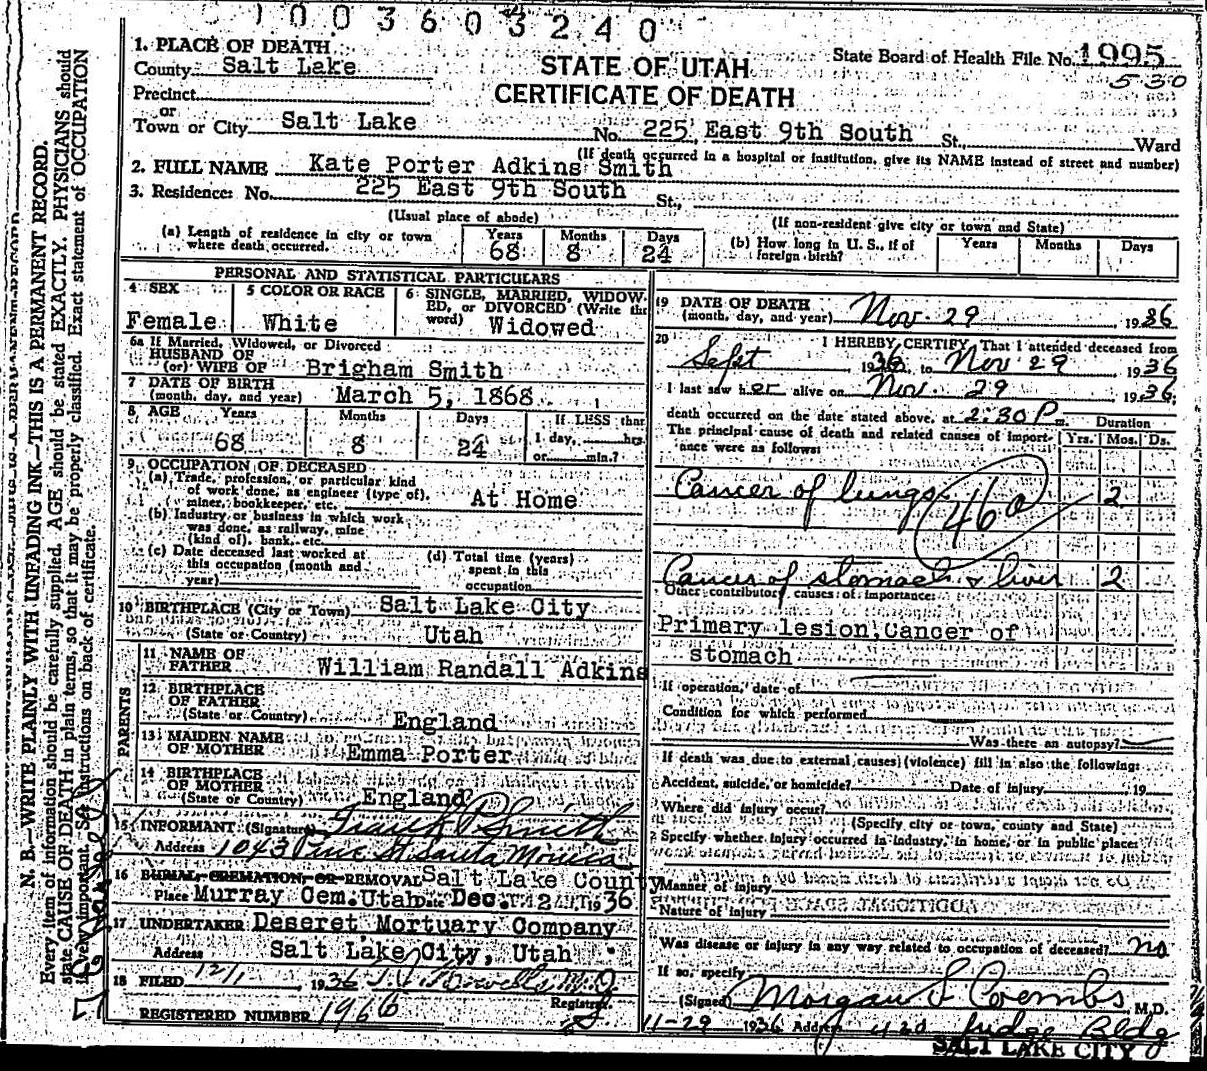 1003603240
1. PLACE OF DEATH
County Salt Lake
STATE OF UTAH
State Board of Health File No. 1995
530
Precinct
CERTIFICATE OF DEATH
or
Town or City Salt Lake No. 225 East 9th South St., Ward
(If death occurred in a hospital or institution, give its NAME instead of street and number)
2. FULL NAME Kate Porter Adkins Smith
3. Residence: No. 225 East 9th South St.,
(Usual place of abode) (If non-resident give city or town and State)
(a) Length of residence in city or town where death occurred. Years 68 Months 8 Days 24
(b) How long in U. S., if of foreign birth? Years Months Days
PERSONAL AND STATISTICAL PARTICULARS
4 SEX Female
5 COLOR OR RACE White
6 SINGLE, MARRIED, WIDOWED, or DIVORCED (Write the word) Widowed
6a If Married, Widowed, or Divorced
HUSBAND OF
(or) WIFE OF Brigham Smith
7 DATE OF BIRTH
(month, day, and year) March 5, 1868
8 AGE Years 68 Months 8 Days 24 If LESS than 1 day, hrs. or min.?
9 OCCUPATION OF DECEASED
(a) Trade, profession, or particular kind
of work done, as engineer (type of),
miner, bookkeeper, etc. At Home
(b) Industry or business in which work
was done, as railway, mine
(kind of), bank, etc.
(c) Date deceased last worked at
this occupation (month and
year)
(d) Total time (years)
spent in this
occupation
10 BIRTHPLACE (City or Town) Salt Lake City
(State or Country) Utah
PARENTS
11 NAME OF
FATHER William Randall Adkins
12 BIRTHPLACE
OF FATHER
(State or Country) England
13 MAIDEN NAME
OF MOTHER Emma Porter
14 BIRTHPLACE
OF MOTHER
(State or Country) England
15 INFORMANT (Signature) Frank P Smith
Address 1043 Pine St. Santa Monica
16 BURIAL, CREMATION, OR REMOVAL Salt Lake County
Place Murray Cem. Utah Dec. 2 1936
17 UNDERTAKER Deseret Mortuary Company
Address Salt Lake City, Utah
18 FILED 12/1, 1936 M.D.
Registrar
REGISTERED NUMBER 1966
19 DATE OF DEATH
(month, day, and year) Nov. 29, 1936
20 I HEREBY CERTIFY, That I attended deceased from
Sept 1936, to Nov 29, 1936
I last saw her alive on Nov. 29, 1936;
death occurred on the date stated above, at 2:30 P m.
The principal cause of death and related causes of importance were as follows:
Duration
Yrs. Mos. Ds.
Cancer of lungs 2
46a
Cancer of stomach & liver 2
Other contributory causes of importance:
Primary lesion, Cancer of
stomach
If operation, date of
Condition for which performed
Was there an autopsy?
If death was due to external causes (violence) fill in also the following:
Accident, suicide, or homicide? Date of injury 19
Where did injury occur?
(Specify city or town, county and State)
Specify whether injury occurred in industry, in home, or in public place:
Manner of injury
Nature of injury
Was disease or injury in any way related to occupation of deceased? no
If so, specify
(Signed) Morgan S Coombs, M.D.
11-29 1936 Address 420 Judge Bldg
SALT LAKE CITY
N. B.—WRITE PLAINLY WITH UNFADING INK—THIS IS A PERMANENT RECORD.
Every item of information should be carefully supplied. AGE should be stated EXACTLY. PHYSICIANS should
state CAUSE OF DEATH in plain terms, so that it may be properly classified. Exact statement of OCCUPATION
is very important. See instructions on back of certificate.